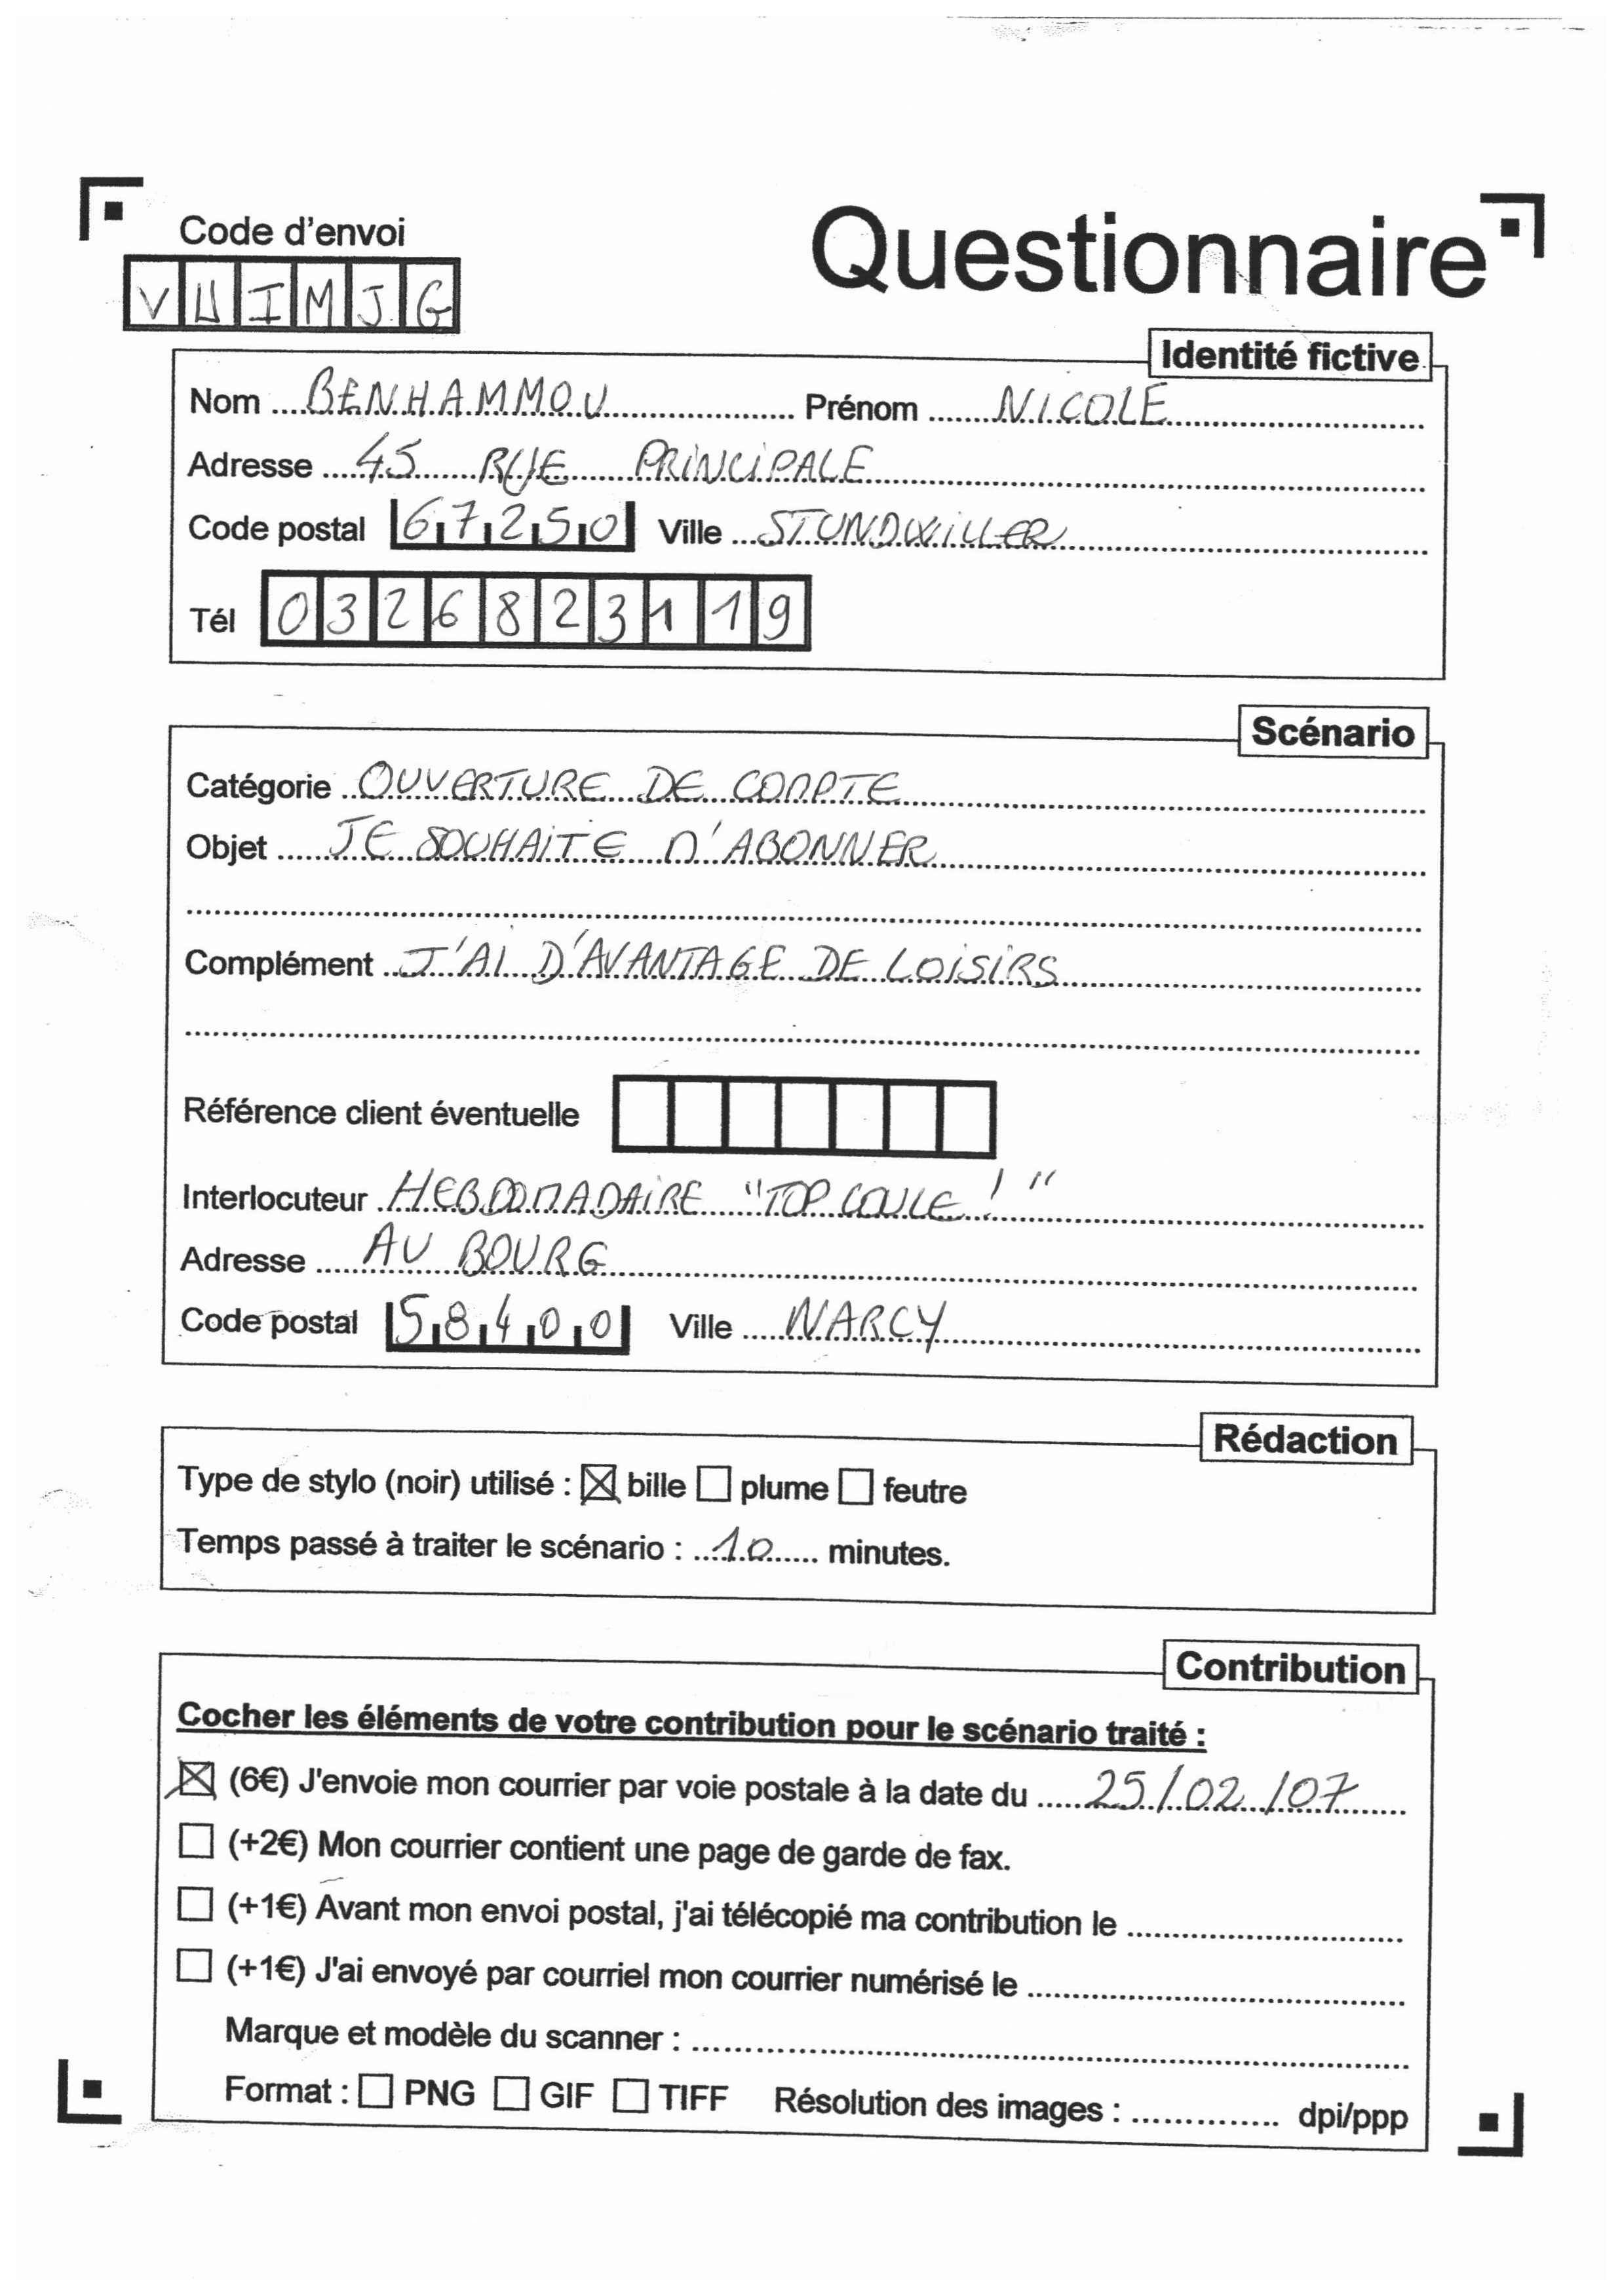 Code d'envoi
Questionnaire
VUIMJG
Identité fictive
Nom BENHAMMOU Prénom NICOLE
Adresse 45 RUE PRINCIPALE
Code postal 67250 Ville STUNDWILLER
Tél 0326823119
Scénario
Catégorie OUVERTURE DE COMPTE
Objet JE SOUHAITE M'ABONNER
Complément J'AI D'AVANTAGE DE LOISIRS
Référence client éventuelle
Interlocuteur HEBDOMADAIRE "TOP COULE !"
Adresse AU BOURG
Code postal 58400 Ville NARCY
Rédaction
Type de stylo (noir) utilisé : ☒ bille ☐ plume ☐ feutre
Temps passé à traiter le scénario : 10 minutes.
Contribution
Cocher les éléments de votre contribution pour le scénario traité :
☒ (6€) J'envoie mon courrier par voie postale à la date du 25/02/07
☐ (+2€) Mon courrier contient une page de garde de fax.
☐ (+1€) Avant mon envoi postal, j'ai télécopié ma contribution le
☐ (+1€) J'ai envoyé par courriel mon courrier numérisé le
Marque et modèle du scanner :
Format : ☐ PNG ☐ GIF ☐ TIFF Résolution des images : dpi/ppp